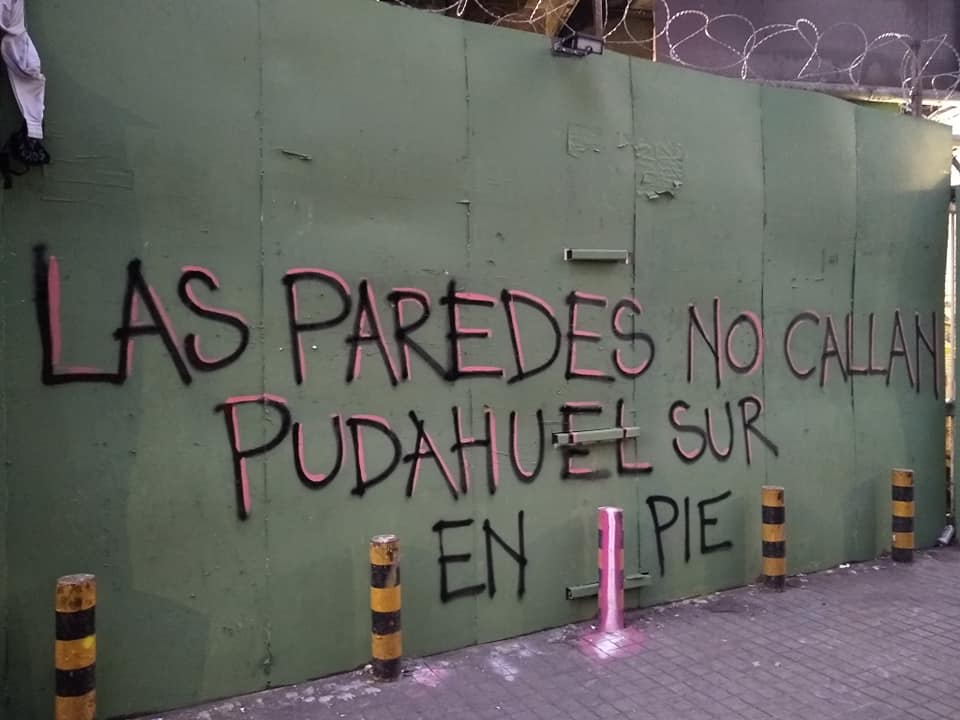 LAS PAREDES NO CALLAN
PUDAHUEL SUR
EN PIE